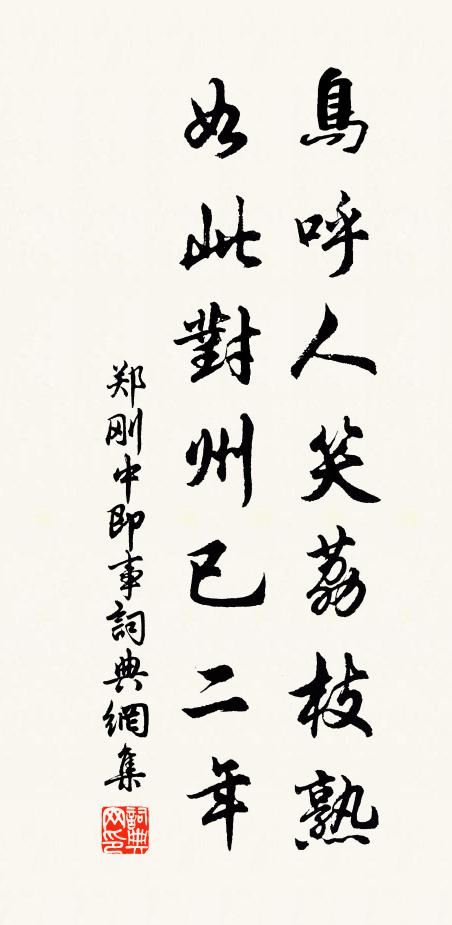 鳥呼人笑荔枝熟
如此對州已二年
郑刚中即事詞典網集
詞典网印